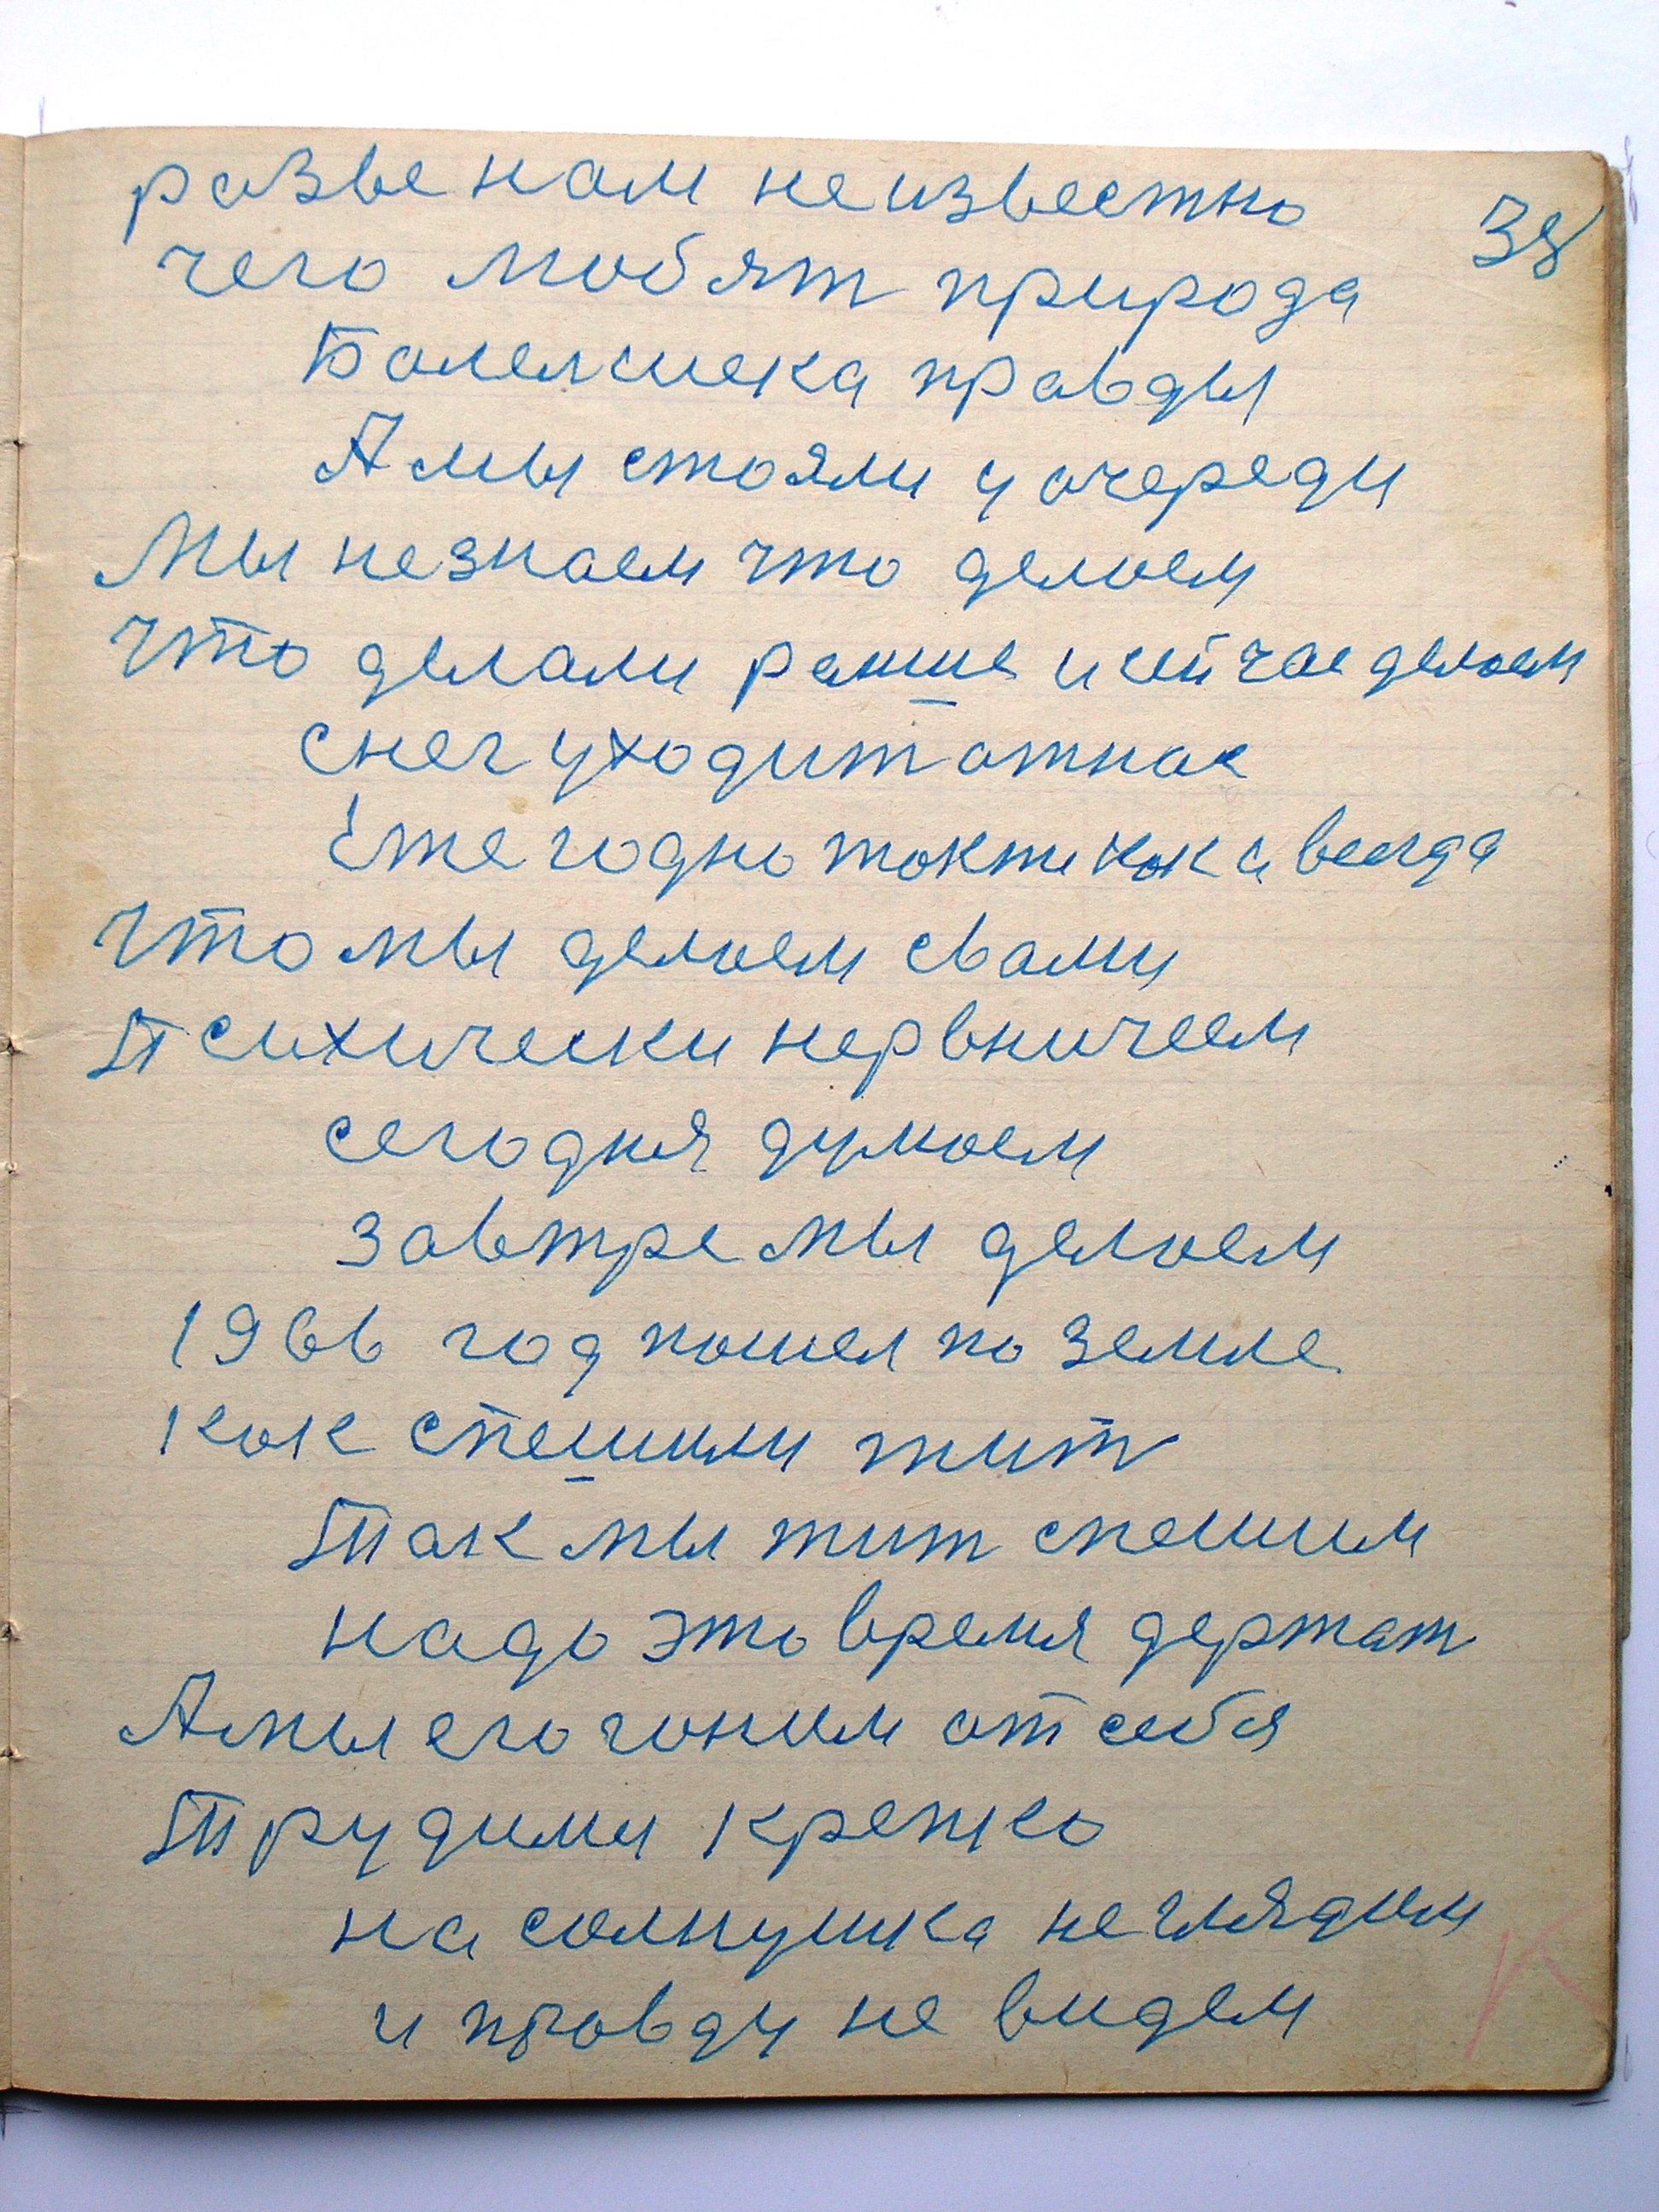 38
разве нам неизвестно
чего любят природа
Болелшека правды
А мы стояли у очереди
Мы незнаем что делоем
Что делали ранше и сейчас делоем
снег уходит отнас
Ежегодно также как и всегда
Что мы делоем свами
Психически нервничеем
сегодня думоем
завтре мы делоем
1966 год пошел по земле
Как спешили жит
Так мы жит спешим
надо это время держат
А мы его гоним от себя
Трудими крепко
на солнушка не глядим
и правду не видем